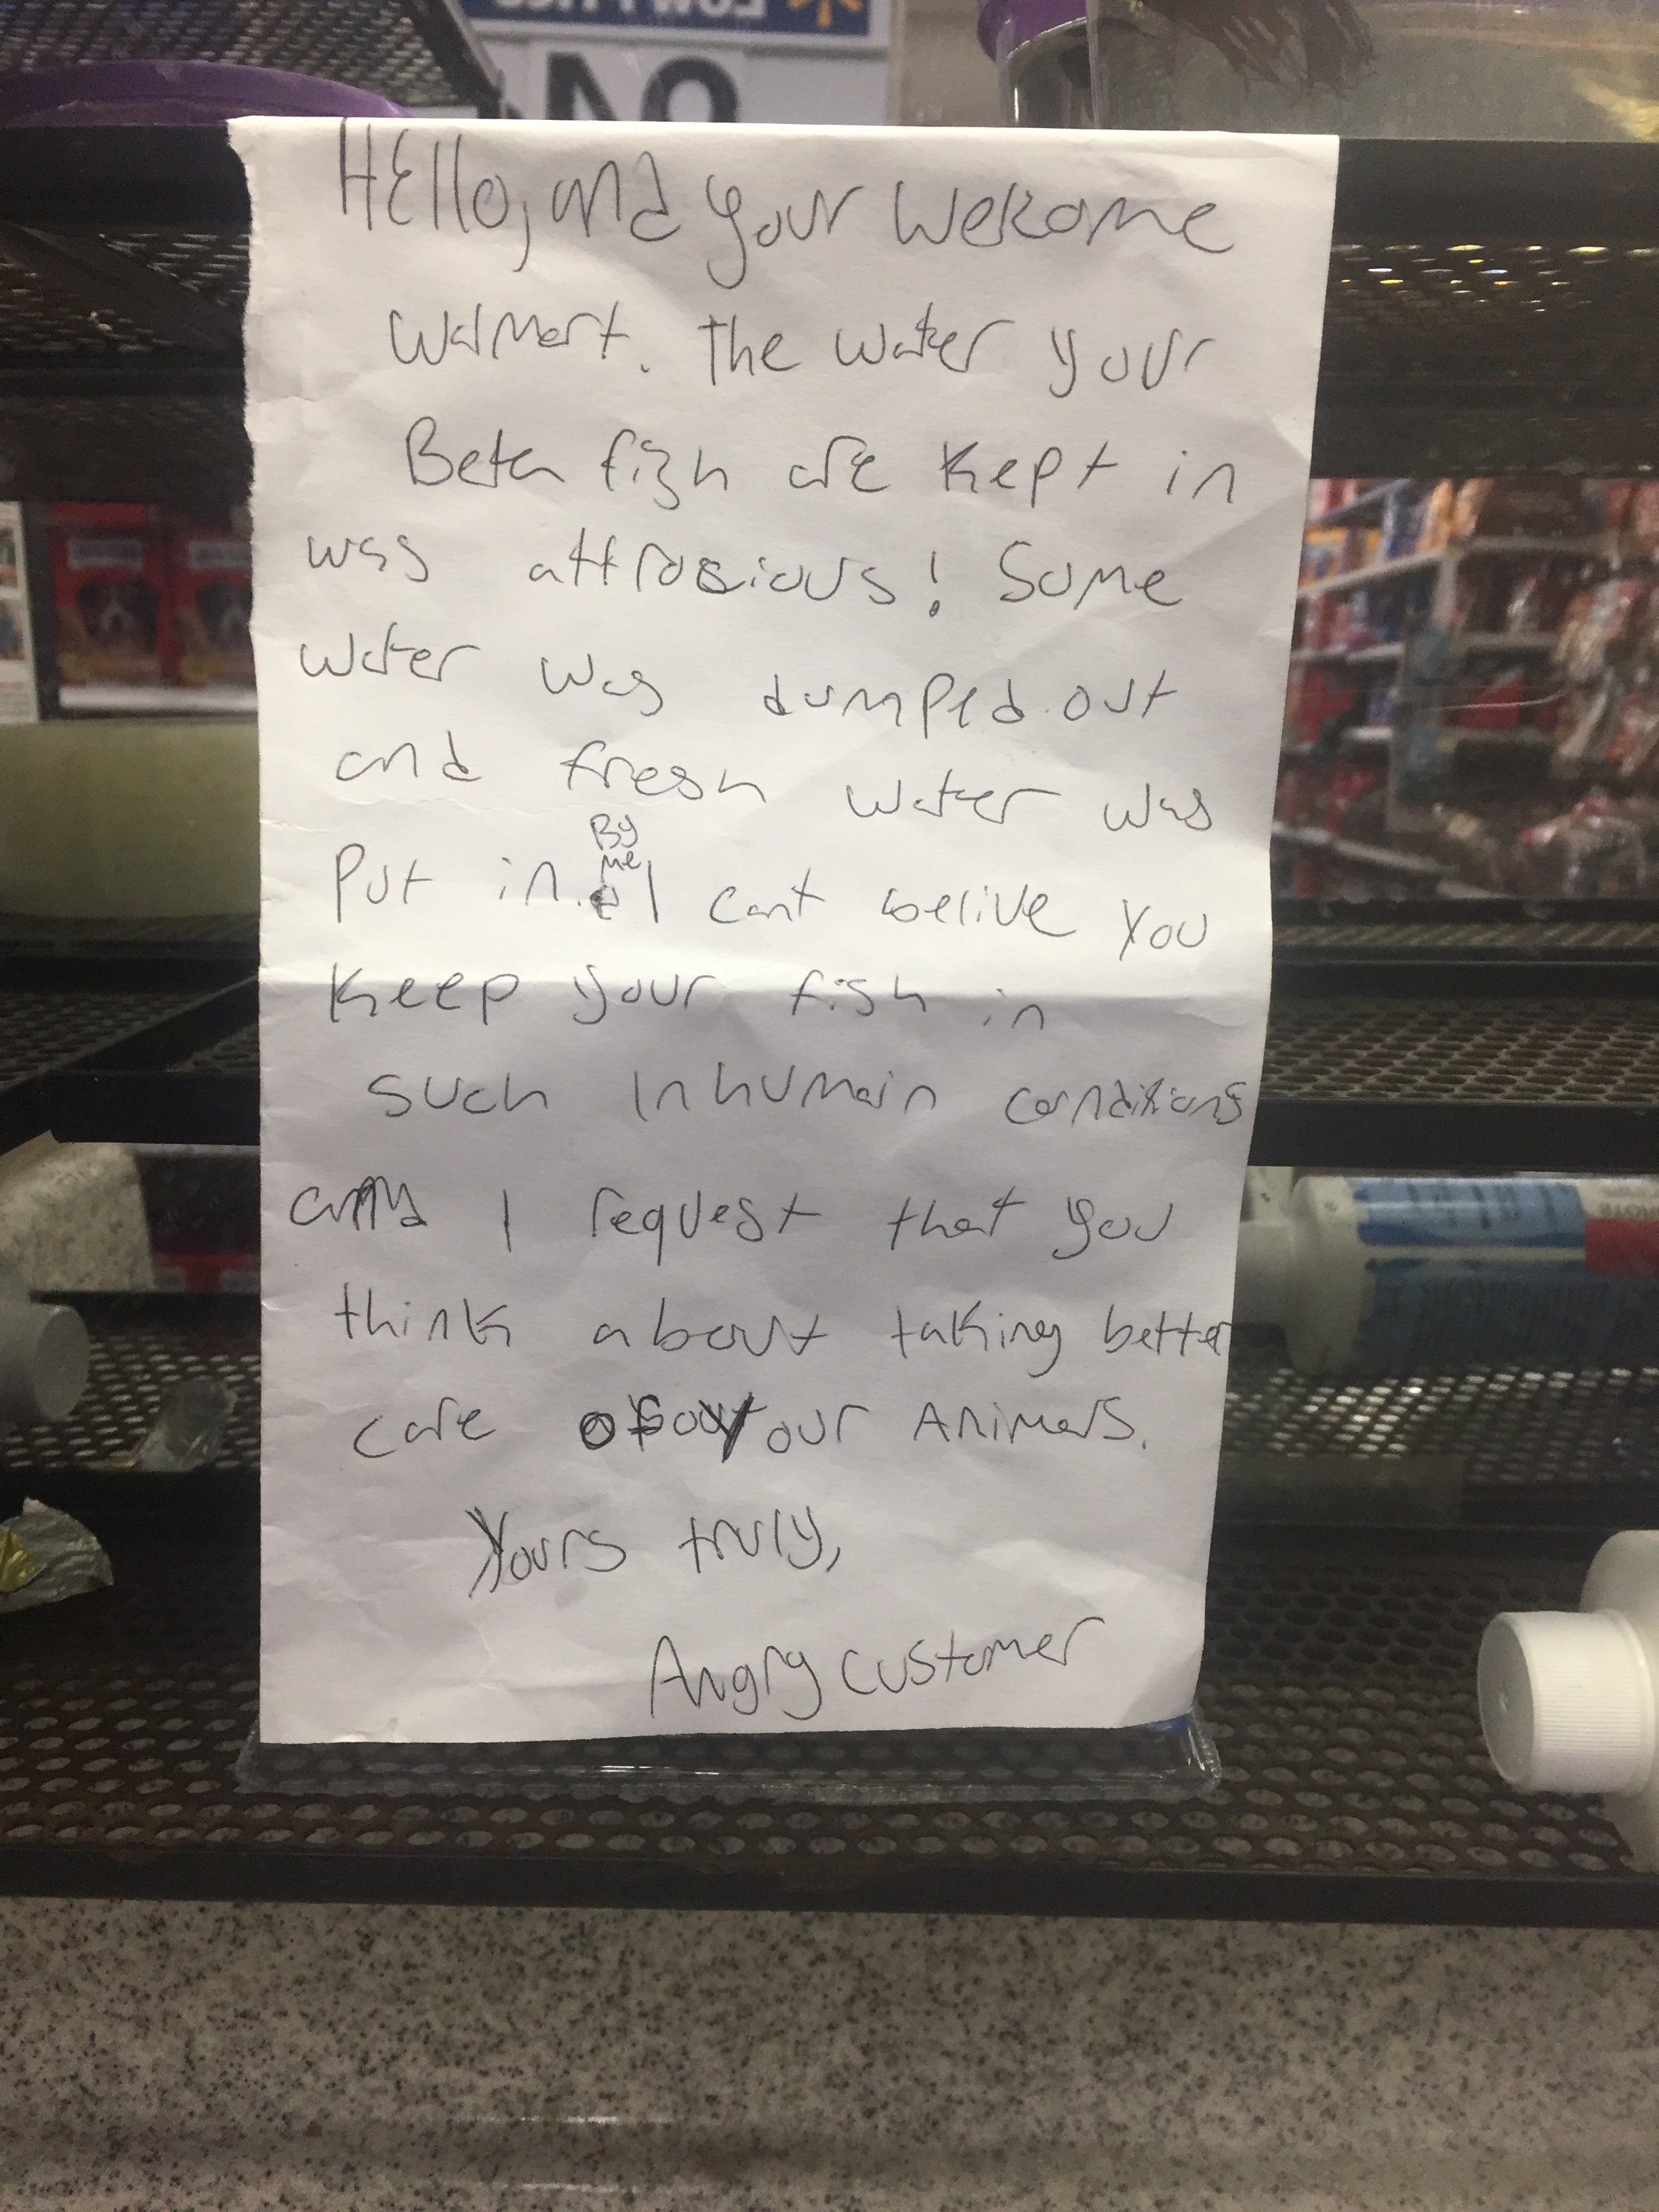 LOW PRICE
Hello, and your Welcome
Walmart. The water your
Beta fish are kept in
was attrocious! Some
water was dumped out
and fresh water was
By
me
Put in. I cant belive you
Keep your fish in
such Inhumain conditions
and I request that you
think about taking better
care of your Animals.
Yours truly,
Angry Customer